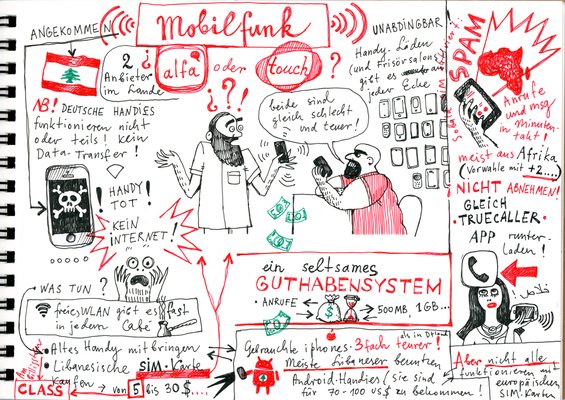 ANGEKOMMEN
Mobilfunk
UNABDINGBAR
2
Anbieter
im Lande
¿
alfa
oder
touch
?
Handy-Läden
(und Frisörsalons)
gibt es
an
jeder Ecke
SPAM
Anrufe
und msg
im Minuten-
takt!
meist aus Afrika
(Vorwahl mit +2....)
NICHT ABNEHMEN!
GLEICH
• TRUECALLER •
APP runter-
laden!
NB! DEUTSCHE HANDIES
funktionieren nicht
oder teils! kein
Data-Transfer!
¿?!
beide sind
gleich schlecht
und teuer!
HANDY
TOT!
KEIN
INTERNET!
WAS TUN?
freies WLAN gibt es fast
in jedem Café
• Altes Handy mitbringen
• Libanesische SIM-Karte
kaufen → von 5 bis 30 $....
CLASS
ein seltsames
GUTHABENSYSTEM
• ANRUFE
$
500MB, 1GB...
Gebrauchte iphones 3fach teurer!
Meiste Libanesen benutzen
Android-Handies (sie sind
für 70-100 US$ zu bekommen!
Aber nicht alle
funktionieren mit
europäischen
SIM-Karten
خلاص!